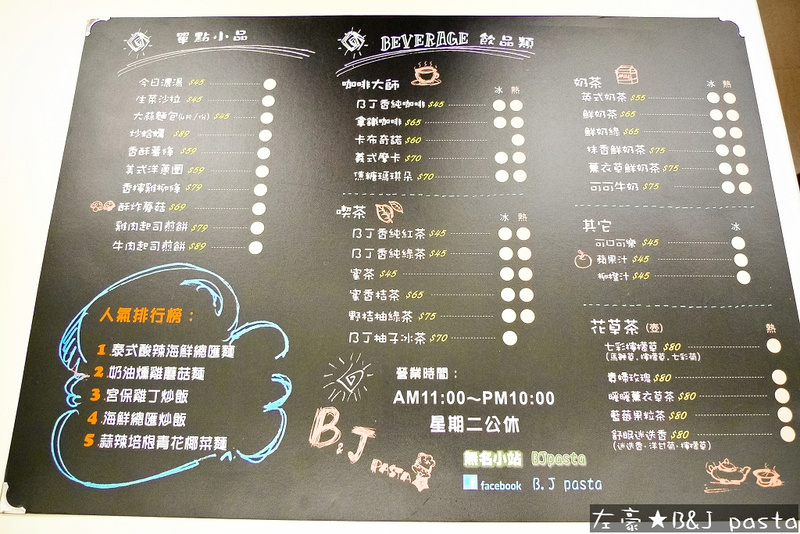 單點小品
今日濃湯 $45
生菜沙拉 $45
大蒜麵包 $45
炒蛤蠣 $89
香酥薯條 $59
美式洋蔥圈 $59
香檸雞柳條 $79
酥炸蘑菇 $69
雞肉起司煎餅 $79
牛肉起司煎餅 $89
人氣排行榜：
1.泰式酸辣海鮮總匯麵
2.奶油燻雞蘑菇麵
3.宮保雞丁炒飯
4.海鮮總匯炒飯
5.蒜辣培根青花椰菜麵
BEVERAGE 飲品類
咖啡大師 冰 熱
B丁香純咖啡 $45
拿鐵咖啡 $65
卡布奇諾 $60
義式摩卡 $70
焦糖瑪琪朵 $70
喫茶 冰 熱
B丁香純紅茶 $45
B丁香純綠茶 $45
蜜茶 $45
蜜香桔茶 $65
野桔柚綠茶 $75
B丁柚子冰茶 $70
營業時間：
AM11:00~PM10:00
星期二公休
B&J PASTA
無名小站 BJpasta
facebook B.J pasta
奶茶 冰 熱
英式奶茶 $55
鮮奶茶 $65
鮮奶綠 $65
抹香鮮奶茶 $75
薰衣草鮮奶茶 $75
可可牛奶 $75
其它 冰
可口可樂 $45
蘋果汁 $45
柳橙汁 $45
花草茶(壺) 熱
七彩檸檬草 $80
(馬鞭草.檸檬草.七彩菊)
貴婦玫瑰 $80
暖暖薰衣草茶 $80
藍莓果粒茶 $80
舒眠迷迭香 $80
(迷迭香.洋甘菊.檸檬草)
左豪★B&J pasta